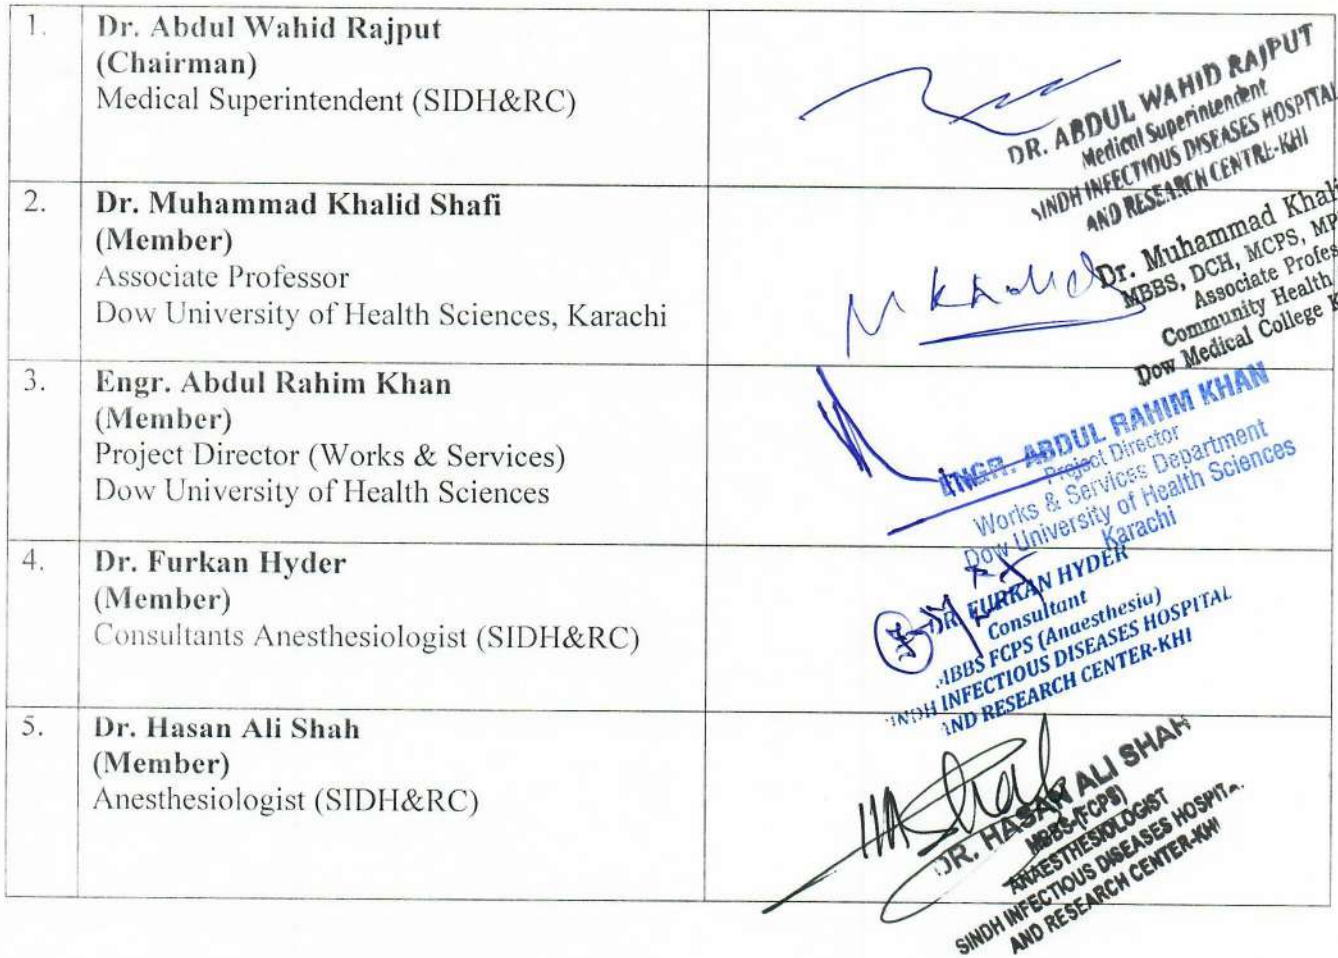 1.
Dr. Abdul Wahid Rajput
(Chairman)
Medical Superintendent (SIDH&RC)
DR. ABDUL WAHID RAJPUT
Medical Superintendent
SINDH INFECTIOUS DISEASES HOSPITAL
AND RESEARCH CENTRE-KHI
2.
Dr. Muhammad Khalid Shafi
(Member)
Associate Professor
Dow University of Health Sciences, Karachi
M Khalid
Dr. Muhammad Khali
MBBS, DCH, MCPS, MP
Associate Profes
Community Health
Dow Medical College K
3.
Engr. Abdul Rahim Khan
(Member)
Project Director (Works & Services)
Dow University of Health Sciences
ENGR. ABDUL RAHIM KHAN
Project Director
Works & Services Department
Dow University of Health Sciences
Karachi
4.
Dr. Furkan Hyder
(Member)
Consultants Anesthesiologist (SIDH&RC)
DR. FURKAN HYDER
Consultant
MBBS FCPS (Anaesthesia)
SINDH INFECTIOUS DISEASES HOSPITAL
AND RESEARCH CENTER-KHI
5.
Dr. Hasan Ali Shah
(Member)
Anesthesiologist (SIDH&RC)
DR. HASAN ALI SHAH
MBBS-(FCPS)
ANAESTHESIOLOGIST
SINDH INFECTIOUS DISEASES HOSPITA
AND RESEARCH CENTER-KHI